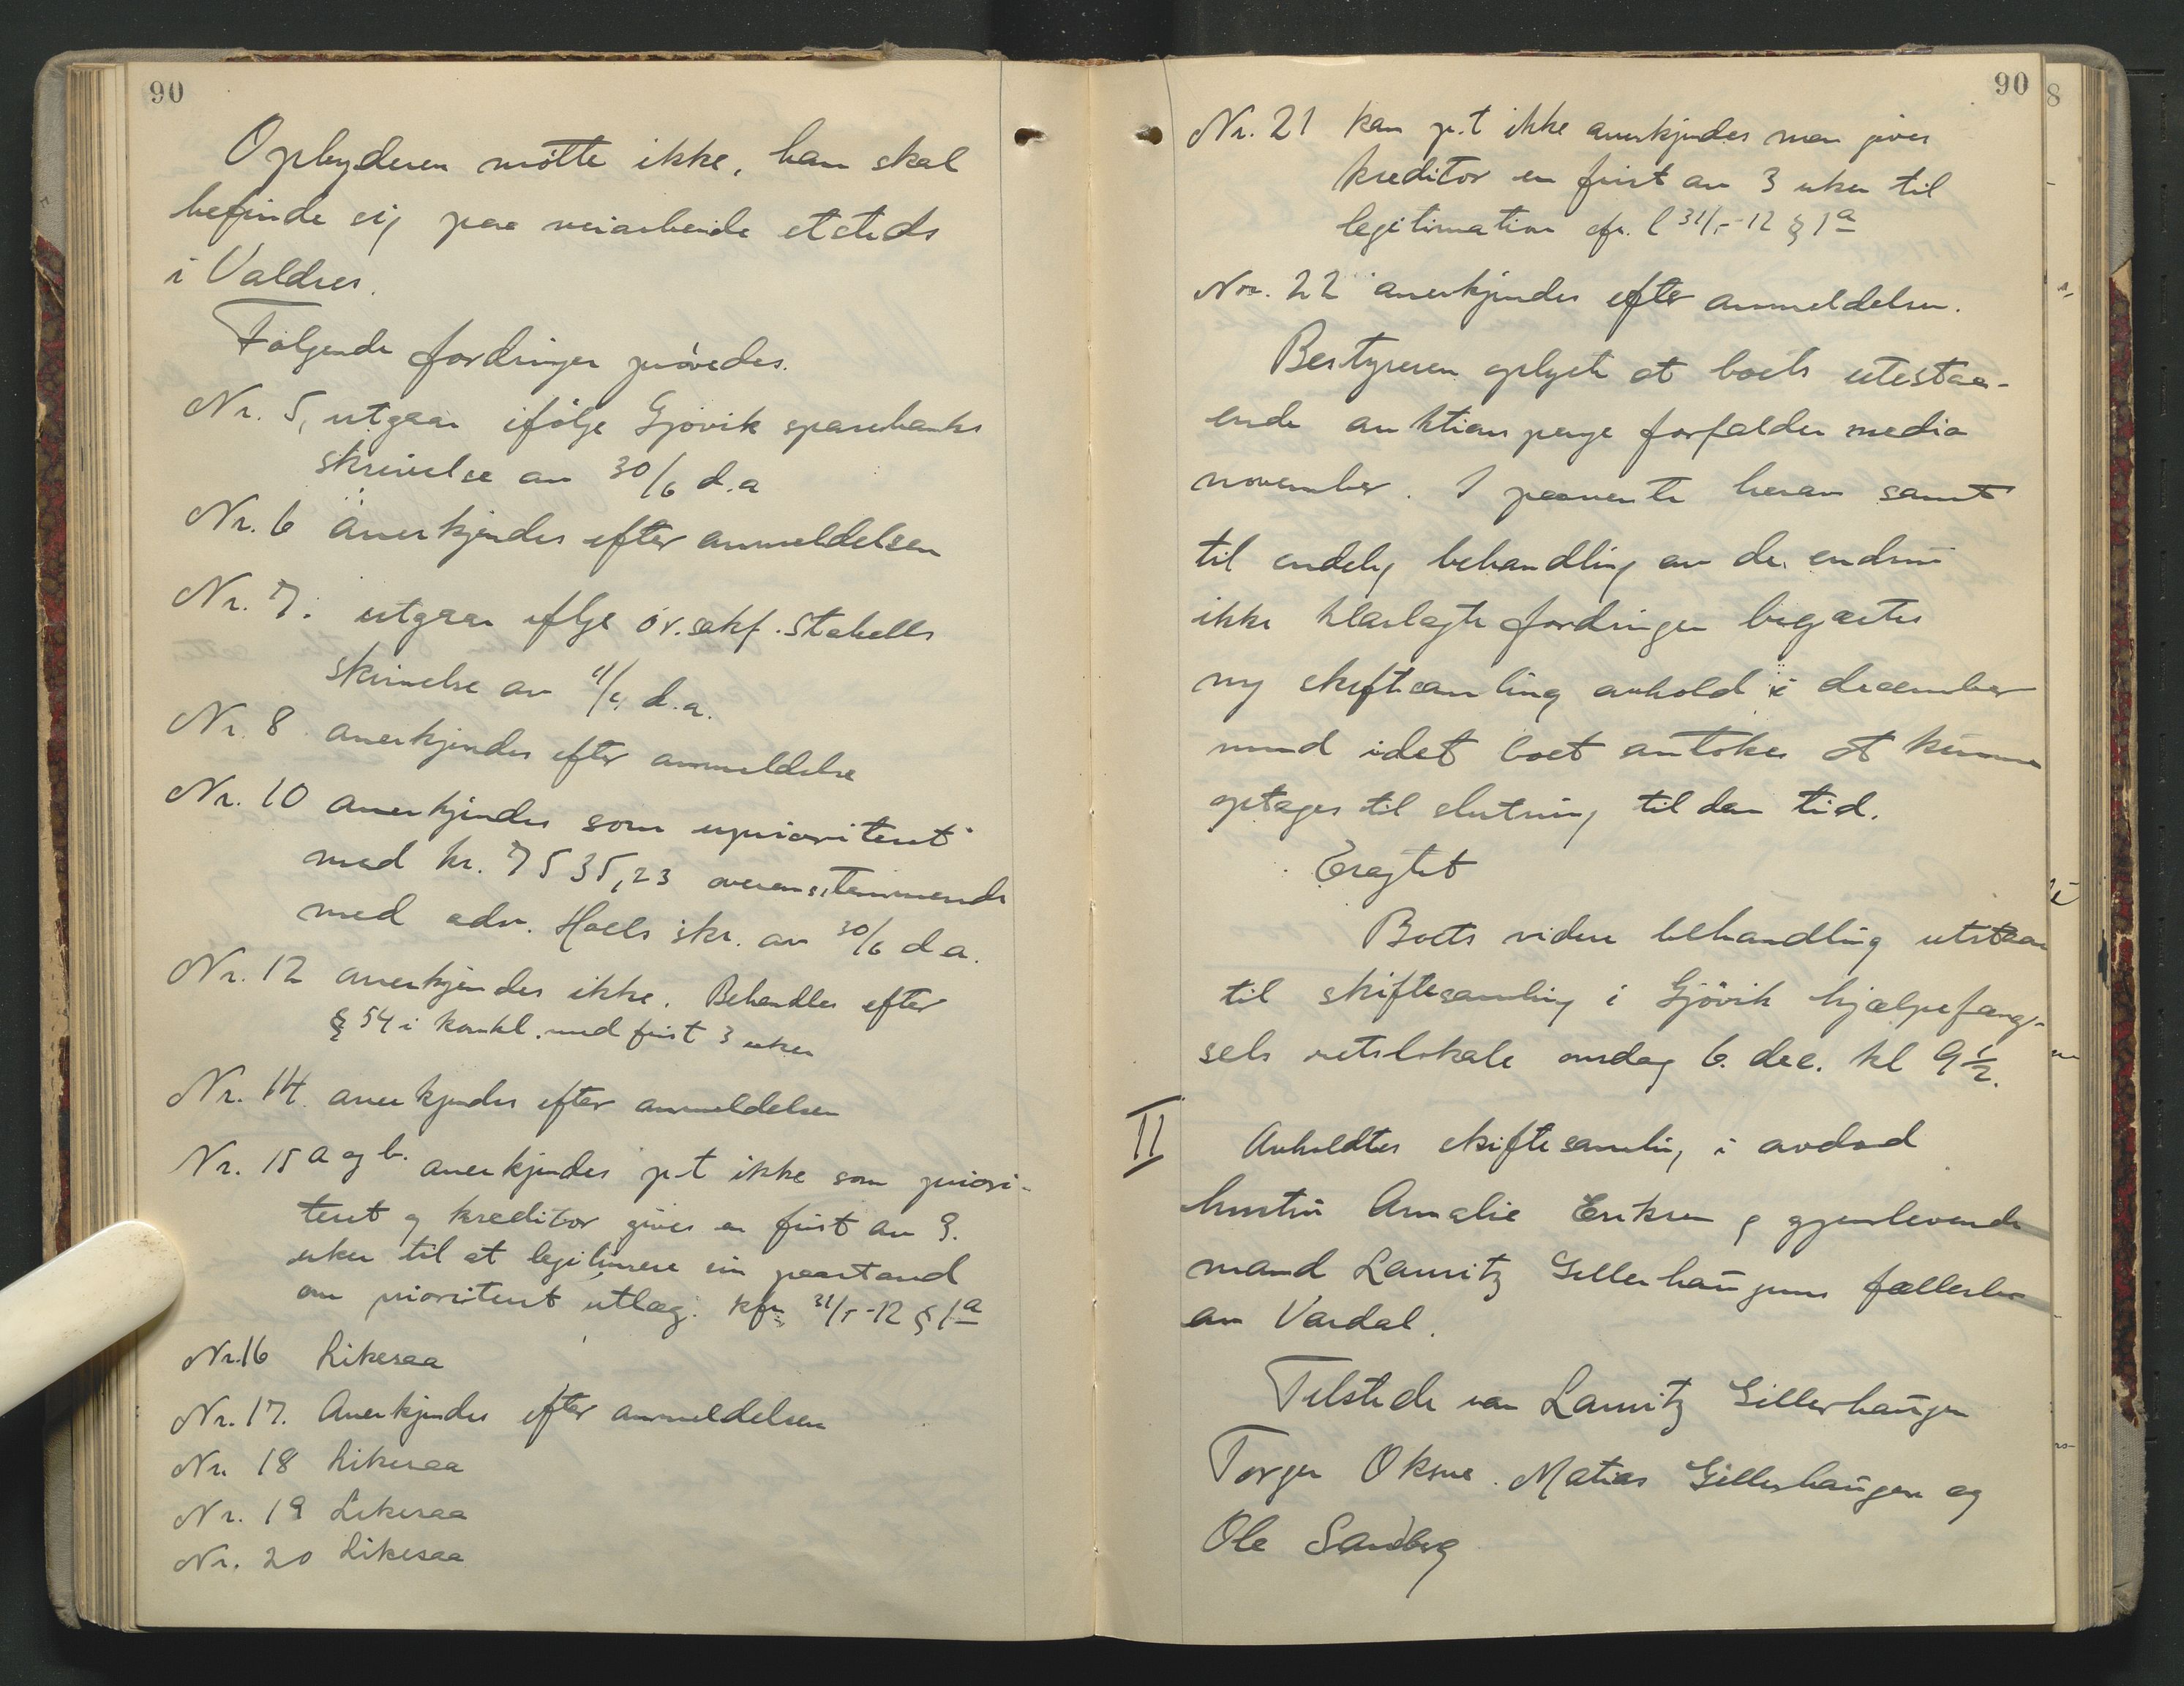 90
Opbyderen møtte ikke, han skal
befinde sig paa veiarbeide etsteds
i Valdres.
Følgende fordringer prøvedes.
Nr. 5, utgaar ifølge Gjøvik sparebanks
skrivelse av 30/6 d.a
Nr. 6 anerkjendes efter anmeldelsen
Nr. 7. utgaar iflge o.r.sakf. Stabells
skrivelse av d.a.
Nr. 8 anerkjendes efter anmeldelse
Nr. 10 anerkjendes som uprioritert
med kr. 7535,23 overensstemmende
med adv. Hoels skr. av 30/6 d.a.
Nr. 12 anerkjendes ikke. Behandles efter
§ 54 i konkl. med frist 3 uker
Nr. 14 anerkjendes efter anmeldelsen
Nr. 15 a og b. anerkjendes p.t ikke som priori-
tert og kreditor gives en frist av 3.
uker til at legitimere sin paastand
om prioritert utlæg. kfr. 31/5-12 § 1a
Nr. 16 Likesaa
Nr. 17. Anerkjendes efter anmeldelsen
Nr. 18 Likesaa
Nr. 19 Likesaa
Nr. 20 Likesaa
90
8
Nr. 21 kan p.t ikke anerkjendes men gives
kreditor en frist av 3 uker til
legitimation cfr. l 31/5-12 § 1a
Nr. 22 anerkjendes efter anmeldelsen.
Bestyreren oplyste at boets utestaa-
ende auktionspenge forfalder medio
november. I paavente herav samt
til endelig behandling av de endnu
ikke klarlagte fordringer begjærtes
ny skiftesamling avhold i december
mnd idet boet antokes at kunne
optages til slutning til den tid.
Eragtet
Boets videre behandling utstaar
til skiftesamling i Gjøvik hjælpefæng-
sels retslokale onsdag 6. dec. kl 9 1/2.
II
Avholdtes skiftesamling i avdød
hustru Amalie Eriksen og gjenlevende
mand Lauritz Gillerhaugens fællesbo
av Vardal.
Tilstede var Lauritz Gillerhaugen
Torger Oksne. Matias Gillerhaugen og
Ole Sandberg